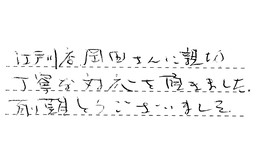 江戸川店岡田さんに親切
丁寧な対応を頂きました。
有り難とうございました。